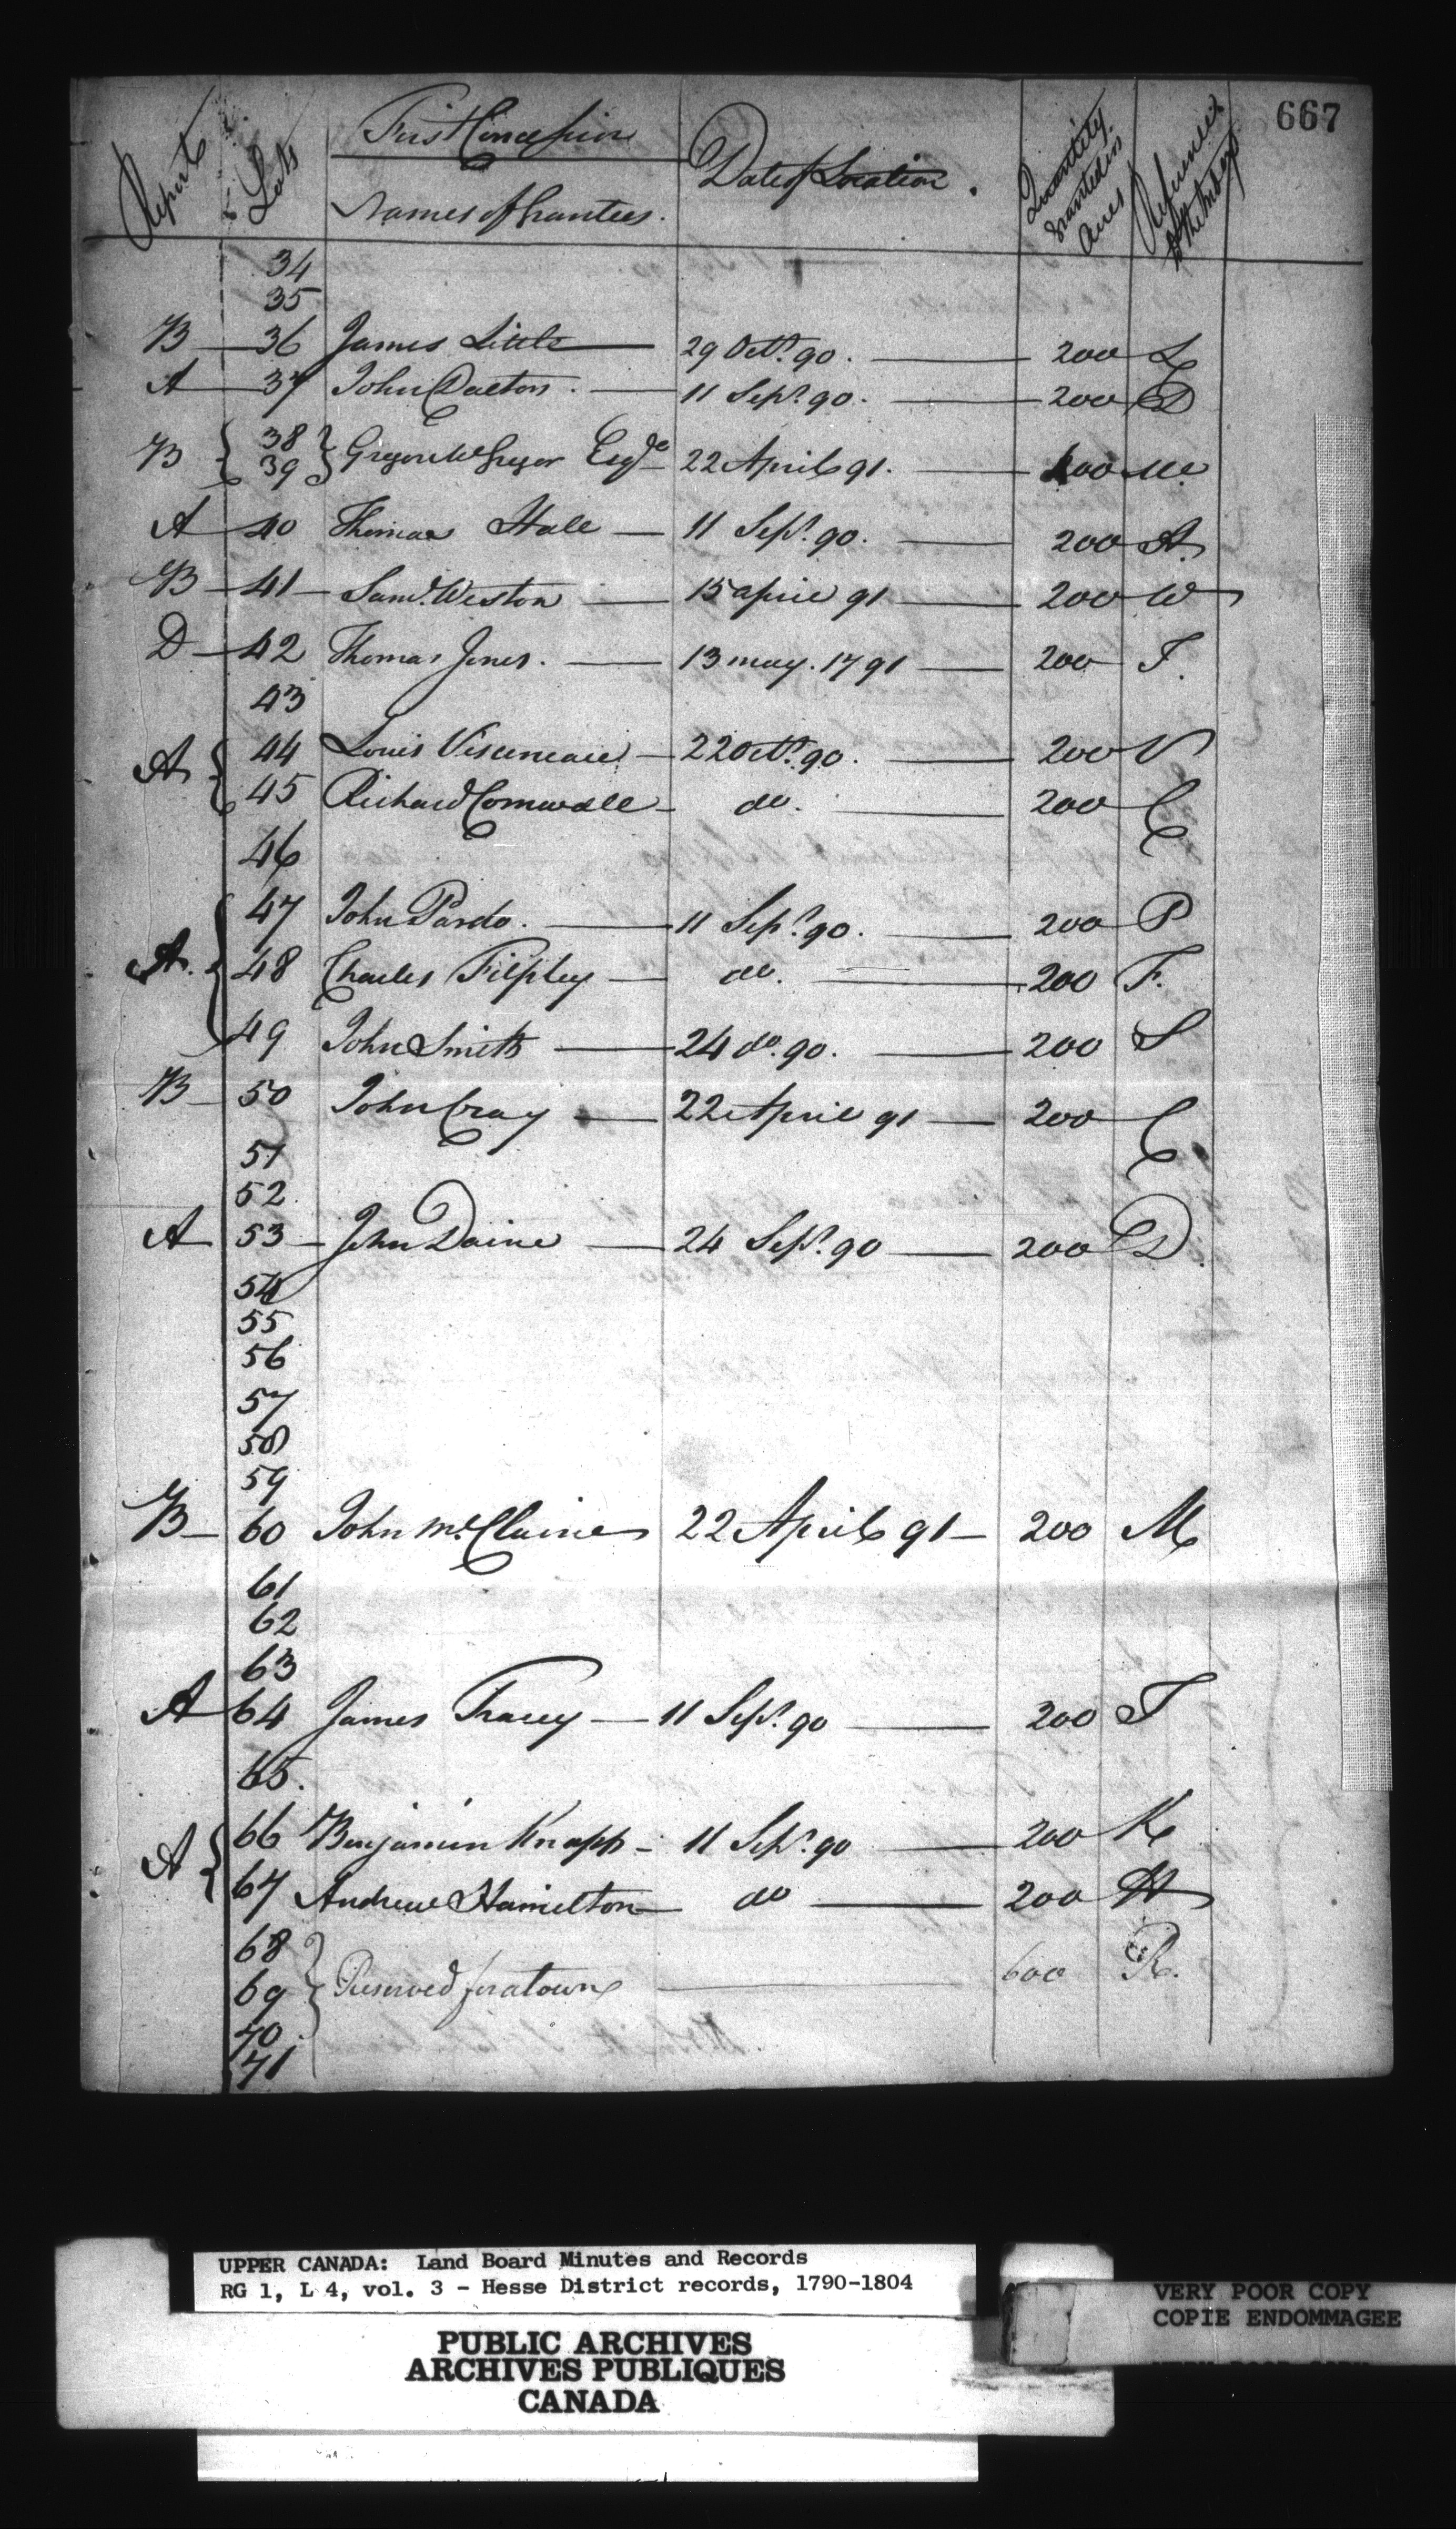 667
Reports Lots First Concession Date of Location. Quantity granted in Acres References to the Index
Names of Grantees.
34
35
B 36 James Little 29 Octr. 90. 200 L
A 37 John Dalton. 11 Sepr. 90. 200 D
B { 38 } Gregor McGregor Esqr. 22 April 91. 400 Mc
39
A 40 Thomas Hall 11 Sepr. 90. 200
B 41 Saml. Weston 15 april 91 200 W
D 42 Thomas Jones. 13 may. 1791 200 J.
43
A { 44 Louis 22 Octr. 90. 200 V
45 Richard Cornwall do. 200 C
46
47 John Pardo. 11 Sepr. 90. 200 P
A. { 48 Charles do. 200 F.
49 John Smith 24 do. 90. 200 S
B 50 John Cray 22 April 91 200 C
51
52
A 53 John Daine 24 Sepr. 90 200 D
54
55
56
57
58
59
B 60 John McClaine 22 April 91 200 M
61
62
63
A 64 James Tracey 11 Sepr. 90 200 T
65.
A { 66 Benjamin Knapp 11 Sepr. 90 200 K
67 Andrew Hamilton do 200 H
68
69 } Reserved for a town 600 R.
70
71
UPPER CANADA: Land Board Minutes and Records
RG 1, L 4, vol. 3 - Hesse District records, 1790-1804
VERY POOR COPY
COPIE ENDOMMAGEE
PUBLIC ARCHIVES
ARCHIVES PUBLIQUES
CANADA